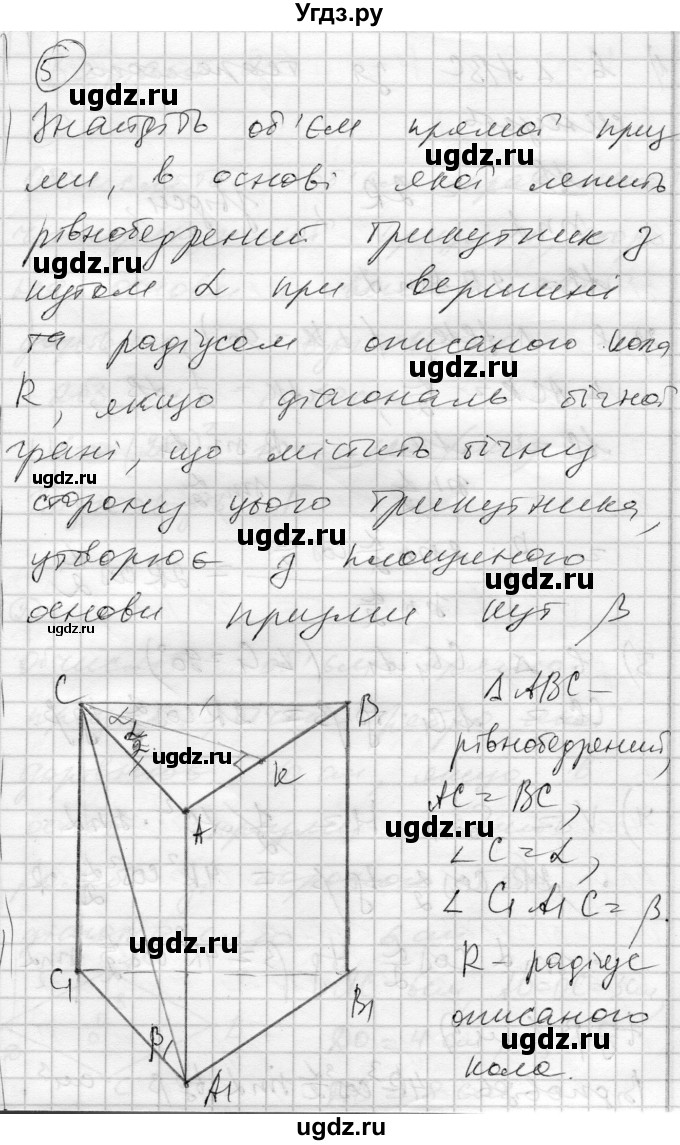 Угдз.ру
5
Знайдіть об'єм прямої приз
ugdz.ru
ми, в основі якої лежить
рівнобедрений трикутник з
кутом α при вершині
та радіусом описаного кола
R, якщо діагональ бічної
грані, що містить бічну
сторону цього трикутника,
утворює з площиною
основи призми кут β
C
B
α
α/2
K
A
C1
B1
β
A1
Δ ABC –
рівнобедрений,
AC = BC,
∠C = α,
∠ C1 A1 C = β.
R – радіус
описаного
кола.
ugdz.ru
ugdz.ru
ugdz.ru
ugdz.ru
ugdz.ru
ugdz.ru
ugdz.ru
ugdz.ru
ugdz.ru
ugdz.ru
ugdz.ru
ugdz.ru